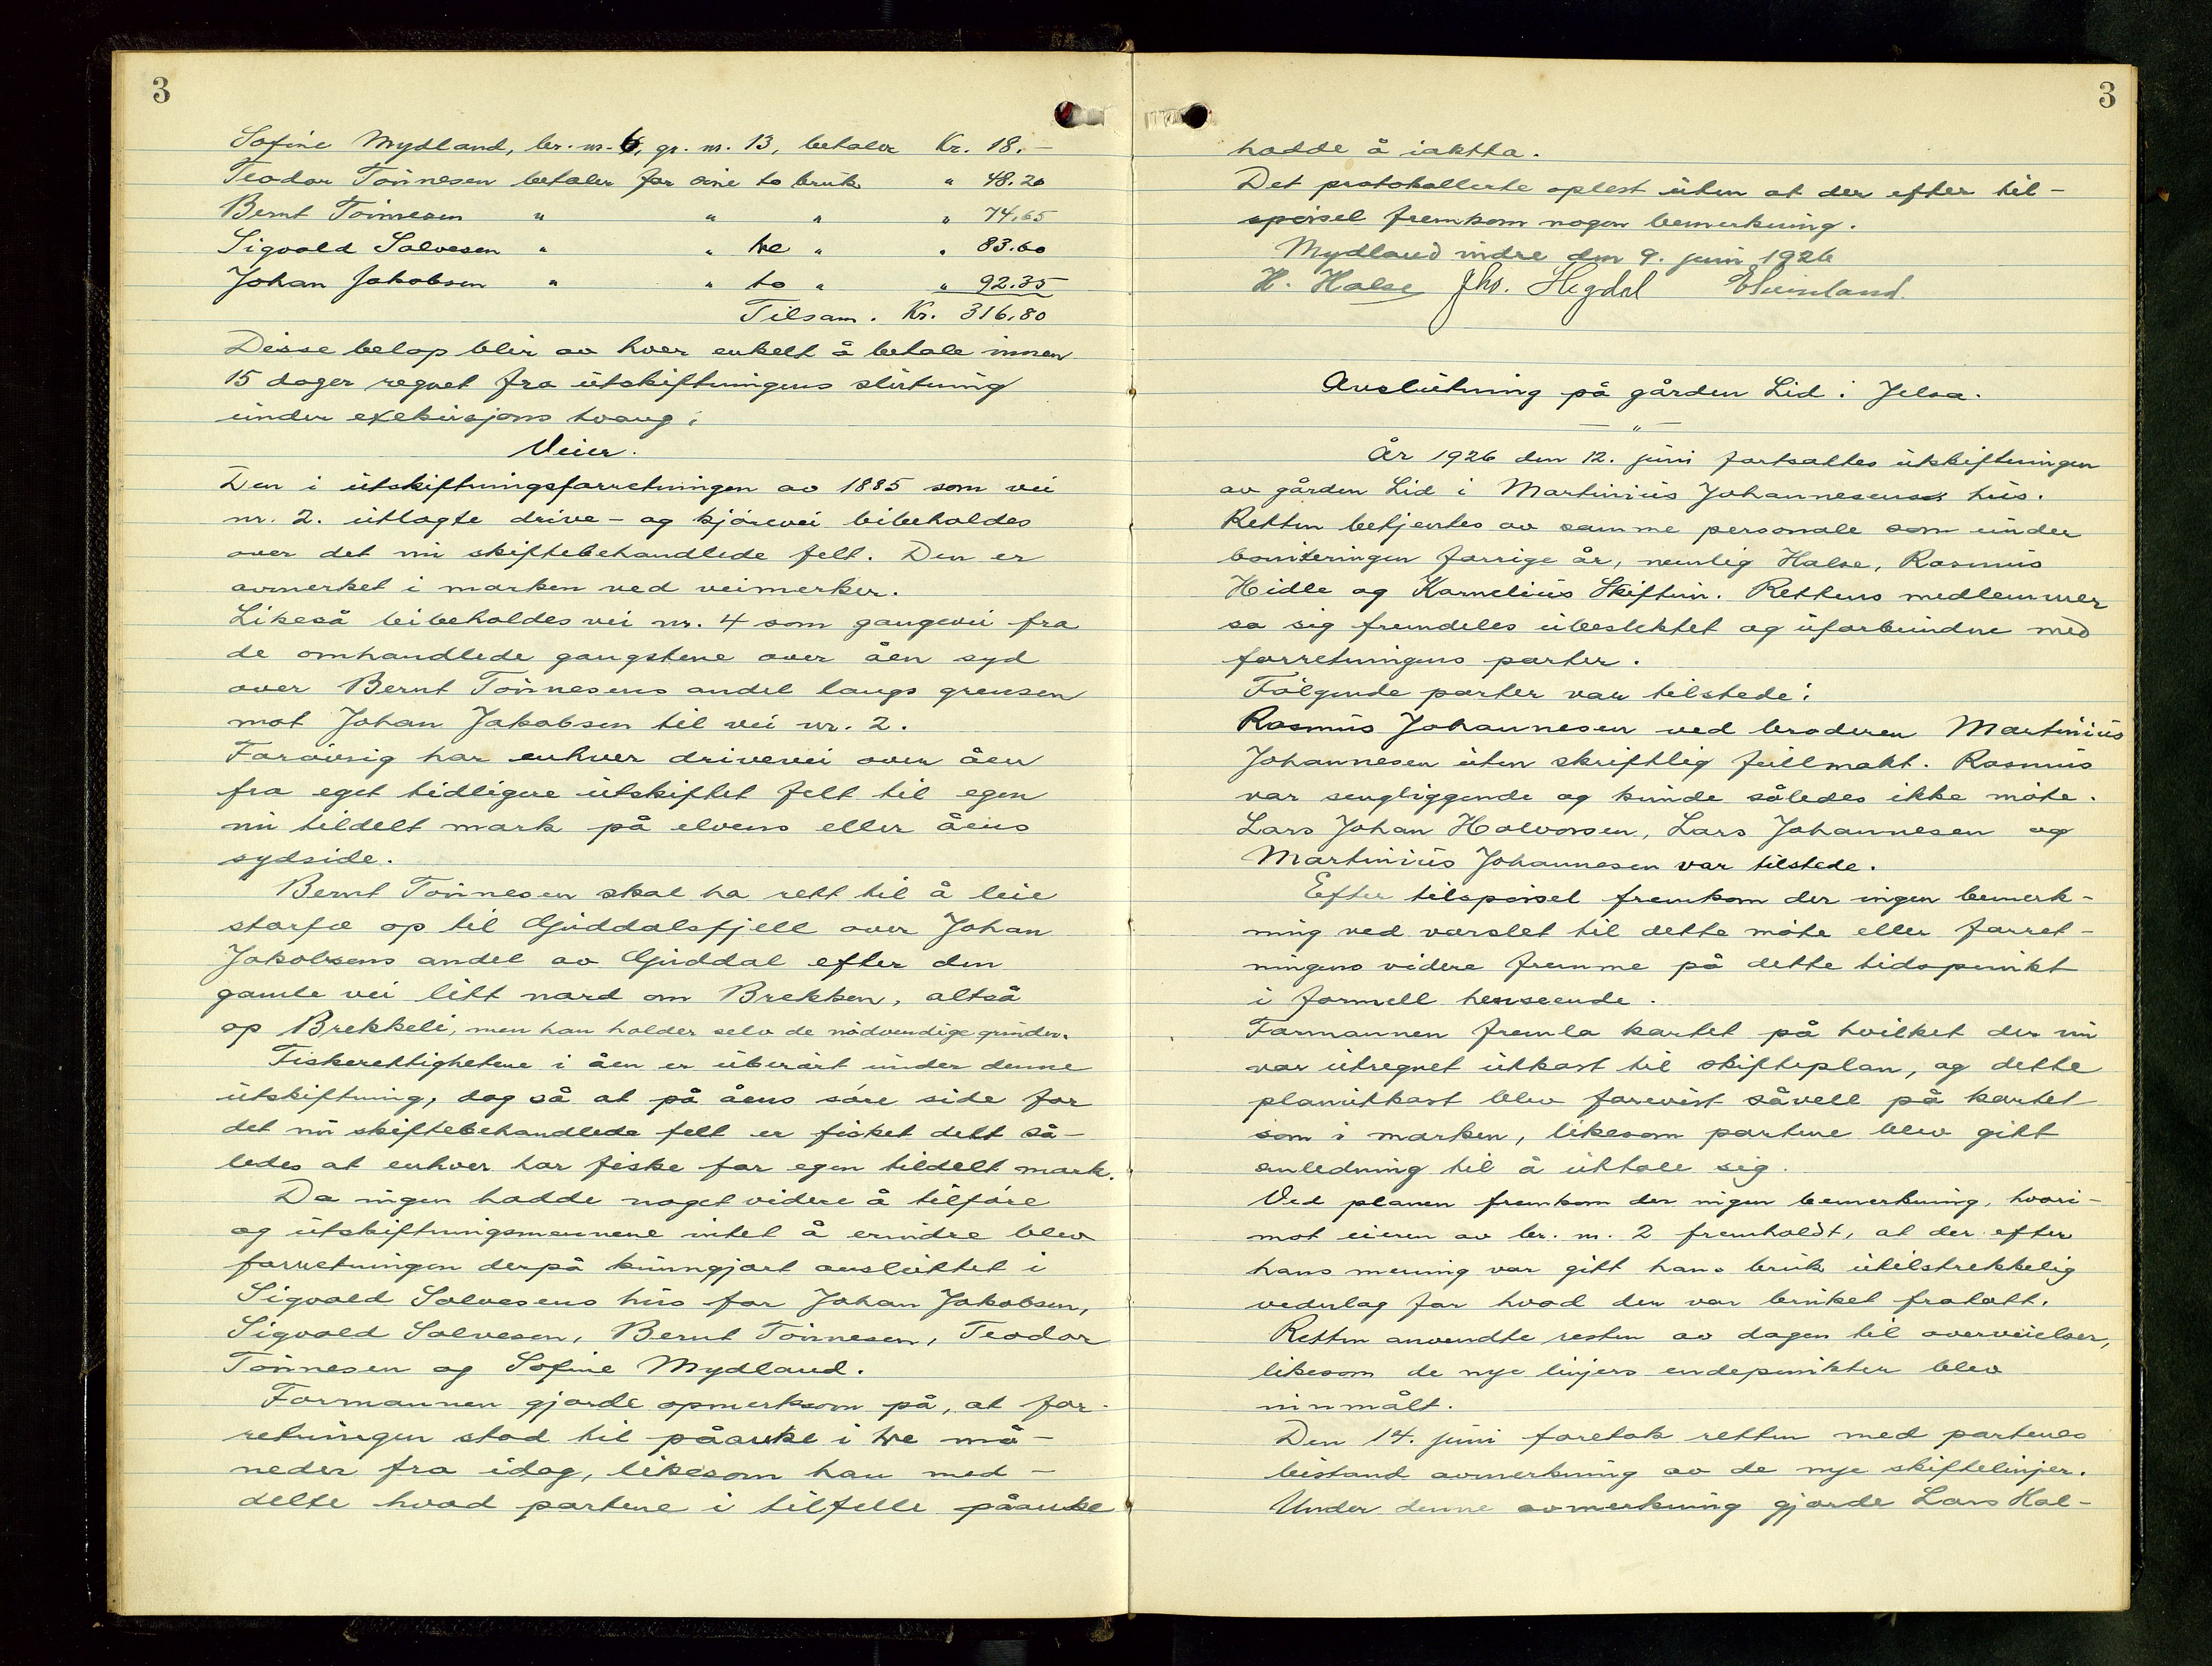 3
Sofine Mydland, br. nr. 6, gr. nr. 13, betaler Kr. 18.–
Teodor Tönnesen betaler for sine to bruk " 48.20
Bernt Tönnesen " " " " 74,65
Sigvald Salvesen " " tre " " 83.60
Johan Jakobsen " " to " " 92.35
Tilsam. Kr. 316,80
Disse belöp blir av hver enkelt å betale innen
15 dager regnet fra utskiftningens slutning
under exekusjons tvang:
Veier.
Den i utskiftningsforretningen av 1885 som vei
nr. 2. utlagte drive- og kjörevei bibeholdes
over det nu skiftebehandlede felt. Den er
avmerket i marken ved veimerker.
Likeså bibeholdes vei nr. 4 som gangvei fra
de omhandlede gangstene over åen syd
over Bernt Tönnesens andel langs grensen
mot Johan Jakobsen til vei nr. 2.
Forövrig har enhver drivevei over åen
fra eget tidligere utskiftet felt til egen
nu tildelt mark på elvens eller åens
sydside.
Bernt Tönnesen skal ha rett til å leie
storfe op til Guddalsfjell over Johan
Jakobsens andel av Guddal efter den
gamle vei litt nord om Brekken, altså
op Brekkeli, men han holder selv de nödvendige grinder.
Fiskerettighetene i åen er uberört under denne
utskiftning, dog så at på åens söre side for
det nu skiftebehandlede felt er fisket delt så-
ledes at enhver har fiske for egen tildelt mark.
Da ingen hadde noget videre å tilföre
og utskiftningsmennene intet å erindre blev
forretningen derpå kunngjort avsluttet i
Sigvald Salvesens hus for Johan Jakobsen,
Sigvald Salvesen, Bernt Tönnesen, Teodor
Tönnesen og Sofine Mydland.
Formannen gjorde opmerksom på, at for-
retningen stod til påanke i tre må-
neder fra idag, likesom han med-
delte hvad partene i tilfelle påanke
3
hadde å iaktta.
Det protokollerte oplest uten at der efter til-
spörsel fremkom nogen bemerkning.
Mydland indre den 9. juni 1926
H. Halse Jho. Hegdal
Avslutning på gården Lid i Jelsa.
– " –
År 1926 den 12. juni fortsattes utskiftningen
av gården Lid i Martinius Johannesens hus.
Retten betjentes av samme personale som under
boniteringen forrige år, nemlig Halse, Rasmus
Hidle og Kornelius Skiftun. Rettens medlemmer
sa sig fremdeles ubeslektet og uforbundne med
forretningens parter.
Fölgende parter var tilstede:
Rasmus Johannesen ved broderen Martinius
Johannesen uten skriftlig fullmakt. Rasmus
var sengliggende og kunde således ikke möte.
Lars Johan Halvorsen, Lars Johannesen og
Martinius Johannesen var tilstede.
Efter tilspörsel fremkom der ingen bemerk-
ning ved varslet til dette möte eller forret-
ningens videre fremme på dette tidspunkt
i formell henseende.
Formannen fremla kartet på hvilket der nu
var utregnet utkast til skifteplan, og dette
planutkast blev forevist såvell på kartet
som i marken, likesom partene blev gitt
anledning til å uttale sig.
Ved planen fremkom der ingen bemerkning, hvori-
mot eieren av br. nr. 2 fremholdt, at der efter
hans mening var gitt hans bruk utilstrekkelig
vederlag for hvad der var bruket fratatt.
Retten anvendte resten av dagen til overveielser,
likesom de nye linjers endepunkter blev
innmålt.
Den 14. juni foretok retten med partenes
bistand avmerkning av de nye skiftelinjer.
Under denne avmerkning gjorde Lars Hal-